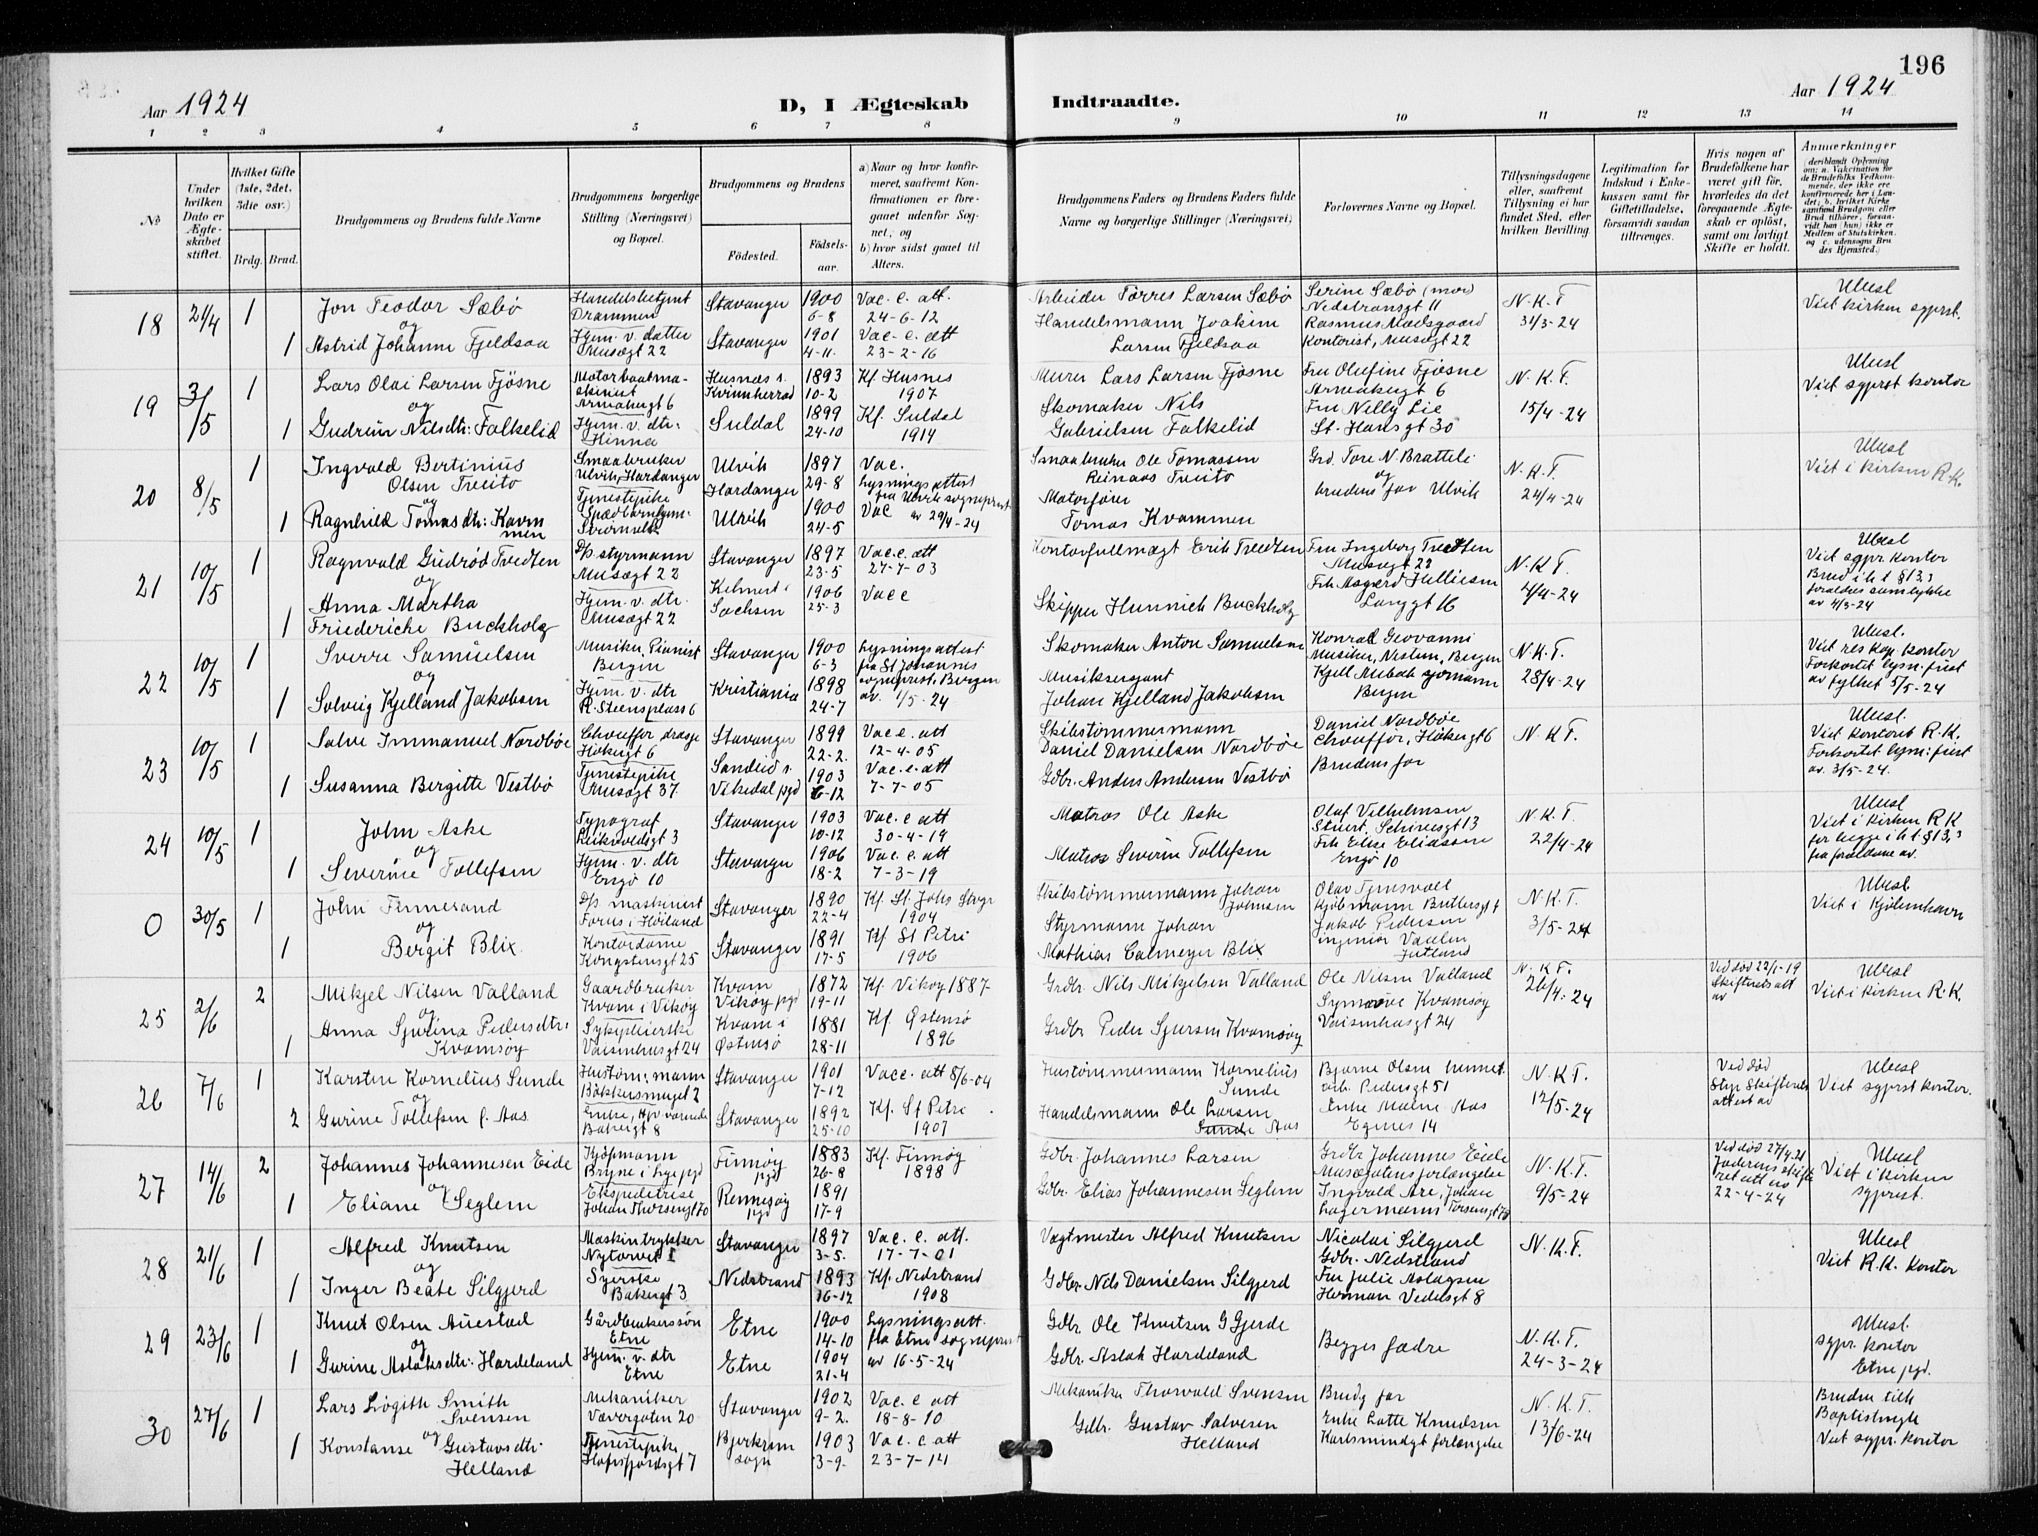 196
Aar 1924
D, I Ægteskab Indtraadte.
Aar 1924
1 2 3 4 5 6 7 8 9 10 11 12 13 14
No
Under hvilken Dato er Ægteskabet stiftet.
Hvilket Gifte (1ste, 2det, 3die osv.)
Brdg. Brud.
Brudgommens og Brudens fulde Navne
Brudgommens borgerlige Stilling (Næringsvei) og Bopæl.
Brudgommens og Brudens
Fødested. Fødselsaar.
a) Naar og hvor konfirmeret, saafremt Konfirmationen er foregaaet udenfor Sognet; og
b) hvor sidst gaaet til Alters.
Brudgommens Faders og Brudens Faders fulde Navne og borgerlige Stillinger (Næringsvei)
Forlovernes Navne og Bopæl.
Tillysningsdagene eller, saafremt Tillysning ei har fundet Sted, efter hvilken Bevilling.
Legitimation for Indskud i Enkekassen samt for Giftetilladelse, forsaavidt saadan tiltrænges.
Hvis nogen af Brudefolkene har været gift før, hvorledes da det foregaaende Ægteskab er opløst, samt om lovligt Skifte er holdt.
Anmærkninger
18 21/4 1
Jon Teodor Sæbö
og
1 Astrid Johanne Fjeldsaa
Handelsbetjent
Drammen
Hjem. v. datter
Musægt 22
Stavanger 1900
6-8
Stavanger 1901
4-11.
Vac. c. att.
24-6-12
Vac. c. att
23-2-16
Arbeider Törres Larsen Sæbö
Handelsmann Joakim
Larsen Fjeldsaa
Serine Sæbö (mor)
Nedstransgt 11
Rasmus Madsgaard
Kontorist, Musægt 22
N.K.T
31/3-24
Ubesl
Viet kirken sgprst.
19 3/5 1
Lars Olai Larsen Fjösne
og
1 Gudrun Nilsdtr: Falkelid
Motorbaatmaskinist
Armakergt 6
Hjem. v. dtr:
Hinna
Husnæs s.
Kvinnherrad
1893
10-2
Suldal 1899
24-10
Kf. Husnes
1907
Kf. Suldal
1914
Murer Lars Larsen Fjösne
Skomaker Nils
Gabrielsen Falkelid
Fru Olufine Fjösne
6
Fru Nilly Lie
St. Hansgt 30
N.K.T.
15/4-24
Ubesl
Viet sgprst kontor
20 8/5 1
Ingvald Bertinius
Olsen Treito
og
1 Ragnhild Tomasdtr: Kvammen
Smaabruker
Ulvik, Hardanger
Tjenestepike
Ulvik
Hardanger
1897
29-8
Ulvik 1900
24-5
Vac.
Lysningsattest
fra Ulvik sogneprest
Vac av 29/4-24
Smaabruker Ole Tomassen
Reinaas Treito
Motorförer
Tomas Kvammen
Grd. Tore N. Bratteli
og
brudens far Ulvik
N.K.T.
24/4-24
Ubesl
Viet i kirken R.K.
21 10/5 1
Ragnvald Gudröd Tvedten
og
Anna Martha
1 Friederiche Buckholz
D/s styrmann
Musægt 22
Hjem. v. dtr.
Musægt 22
Stavanger 1897
23-5
Sachsen
1906
25-3
Vac. c. att
27-7-03
Vacc
Kontorfullmægt Erik Tvedten
Skipper Heinrich Buckholz
Fru Ingeborg Tvedten
Musægt 22
Frk Aagard Helliesen
16
N.K.T.
4/4-24
Ubesl
Viet sgpr. kontor
Brud i h t § 13,3
foreldres samtykke
av 4/3-24
22 10/5 1
Sverre Samuelsen
og
1 Solveig Kjelland Jakobsen
Musiker, Pianist
Bergen
Hjem. v. dtr
R. Steensplass 6
Stavanger 1900
6-3
Kristiania 1898
24-7
Lysningsattest
fra St Johannes
sogneprst. Bergen
av. 1/5-24
Skomaker Anton Samuelsen
Musiksergant
Johan Kjelland Jakobsen
Konrad Geovanni
Musiker, Nesttun, Bergen
Bergen
N.K.T.
28/4-24
Ubesl.
Viet res kap. kontor
Forkortet lysn. frist
av fylket 5/5-24
23 10/5 1
Salve Immanuel Nordböe
1 Susanna Bergitte Vestbö
Chouffør drosje
6
Tjenestepike
Musægt 37
Stavanger 1899
22-2.
Sandeid s.
Vikedal pgd
1903
6-12
Vac. c. att
12-4-05
Vac. c. att
7-7-05
Skibstömmermann
Daniel Danielsen Nordböe
Gdbr. Anders Andersen Vestbö
Daniel Nordböe
Chouffør, 6
Brudens far
N.K.T.
Ubesl.
Viet kontoret R.K.
Forkortet lysn: frist
av. 3/5-24.
24 10/5 1
John Aske
og
1 Severine Tollefsen
Typograf
3
Hjem. v. dtr
Engö 10
Stavanger 1903
10-12
Stavanger 1906
18-2
Vac. c att
30-4-19
Vac. c. att
7-3-19
Matros Ole Aske
Matros Severin Tollefsen
Olaf Vilhelmsen
Stuert, 13
Frk Elise Eliassen
Engö 10
N.K.T.
22/4-24
Ubesl
Viet i kirken R K
for begge i h t § 13,3
fra foreldrene av.
0 30/5 1
John Finnesand
og
1 Bergit Blix.
D/s maskinist
Forus i Höiland
Kontordame
Kongstensgt 25
Stavanger 1890
22-4
Stavanger 1891
17-5
Kf. St. Johs Stvgr
1904
Kf. St Petri
1906
Skibstömmermann Johan
Johnsen
Styrmann Johan
Mathias Calmeyer Blix
Olav
Kjöbmann
Jakob Pedersen
ingeniör
Jutland
N.K.T.
3/5-24
Ubesl.
Viet i Kjöbenhavn
25 2/6 2
Mikjel Nilsen Valland
og
Anna Sjurina Pedersdtr:
1 Kvamsöy
Gaardbruker
Kvam i Vikøy
Sykepleierske
Vaisenhusgt 24
Kvam
Vikøy pgd
1872
19-11
Kvam i
Østensö
1881
28-11
Kf. Vikøy 1887
Kf. Østensö
1896
Grdbr. Nils Mikjelsen Valland
Grdbr Peder Sjursen Kvamsöy
Ole Nilsen Valland
Kvamsöy
Vaisenhusgt 24
N.K.T.
26/4-24
Ved död 22/1-19
Skifterets att
av
Ubesl
Viet i kirken R.K.
26 7/6 1
Karsten Kornelius Sunde
2 Gurine Tollefsen f. Aas.
Hustöm:mann
Bökkersmuget 2
Enke,
Bakergt 8
Stavanger 1901
7-12
Stavanger 1892
25-10
Vacc. att 8/6-04
Kf. St Petri
1907
Hustömmermann Kornelius
Sunde
Handelsmann Ole Larsen
Sunde Aas
Bjarne Olsen
arb. Pedersgt 51
Enke Malne Aas
Egenes 14
N.K.T.
12/5-24
Ved död
Stvgr Skifterets
attest av
Ubesl
Viet sgprst kontor.
27 14/6 2
Johannes Johannesen Eide
og
1 Eliane Seglem
Kjöpmann
Bryne i Lye pgd
Ekspeditrise
Johan Thorsensgt 70
Finnøy
pgd
1883
26-8
Rennesøy
pgd
1891
17-9
Kf. Finnøy
1898
Gdbr. Johannes Larsen
Gdbr. Elias Johannesen Seglem
Grdbr Johannes Eide
Musegatens forlængelse
Ingvald Are, Johan
Lagermann Torsensgt 70
N.K.T.
9/5-24
Ved död 27/4-21
Jæderens skifte
ret att av
22-4-24
Ubesl
Viet i kirken
sgprest.
28 21/6 1
Alfred Knutsen
og
1 Inger Beate Silgjerd
Maskintrykker
Nytorvet 1
Syerske
Bakergt 3
Stavanger 1897
3-5.
Nedstrand 1893
16-12
Vac. c. att.
17-7-01
Kf. Nedstrand
1908
Vagtmester Alfred Knutsen
Gdbr. Nils Danielsen Silgjerd
Nicolai Silgjerd
Gdbr. Nedstrand
Fru Julie Aslagsen
Herman Vedelsgt 8
N.K.T.
Ubesl
Viet R.K. kontor
29 23/6 1
Knut Olsen Auestad
og
1 Gurine Aslaksdtr: Hardeland
Gårdbrukerssön
Etne
Hjem. v. dtr
Etne
Etne 1900
14-10
Etne 1904
21-4
Lysningsatt.
fra Etne sogneprest
av 16-5-24
Gdbr. Ole Knutsen G Gjerde
Gdbr. Aslak Hardeland
Begges fædre
N.K.T.
24-3-24
Ubesl.
sgpr. kontor
Etne pgd.
30 27/6 1
Lars Smith
Svensen
og
1 Konstanse Gustavsdtr:
Helland
Mekaniker
Værergaten 20
Tjenestepike
Hafrsfjordsgt 7
Stavanger 1902
9-2.
Bjerkrem
sogn
1903
3-9.
Vac. c att
18-8-10
Vac. c att
23-7-14
Mekaniker Thorvald Svensen
Gdbr. Gustav Salvesen
Helland
Brudg far
Enke Lotte Knudsen
Karlsmindegt forlængelse
N.K.T.
13/6-24
Bruden tilh
Baptistmegh
Viet sgpr. kontor